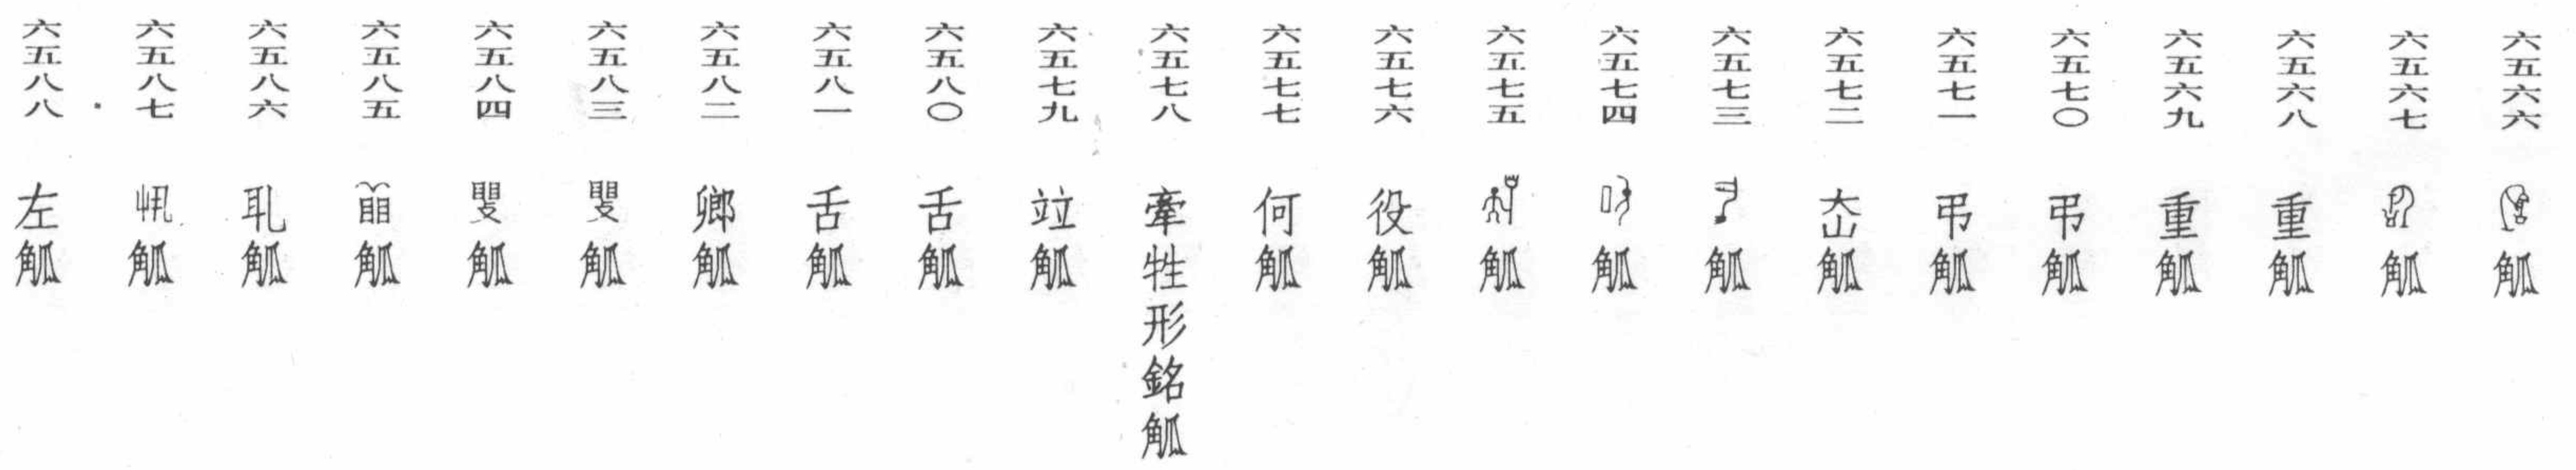 六五六六 觚
六五六七 觚
六五六八 重觚
六五六九 重觚
六五七〇 弔觚
六五七一 弔觚
六五七二 觚
六五七三 觚
六五七四 觚
六五七五 觚
六五七六 役觚
六五七七 何觚
六五七八 牽牲形銘觚
六五七九 竝觚
六五八〇 舌觚
六五八一 舌觚
六五八二 鄉觚
六五八三 觚
六五八四 觚
六五八五 觚
六五八六 觚
六五八七 觚
六五八八 左觚